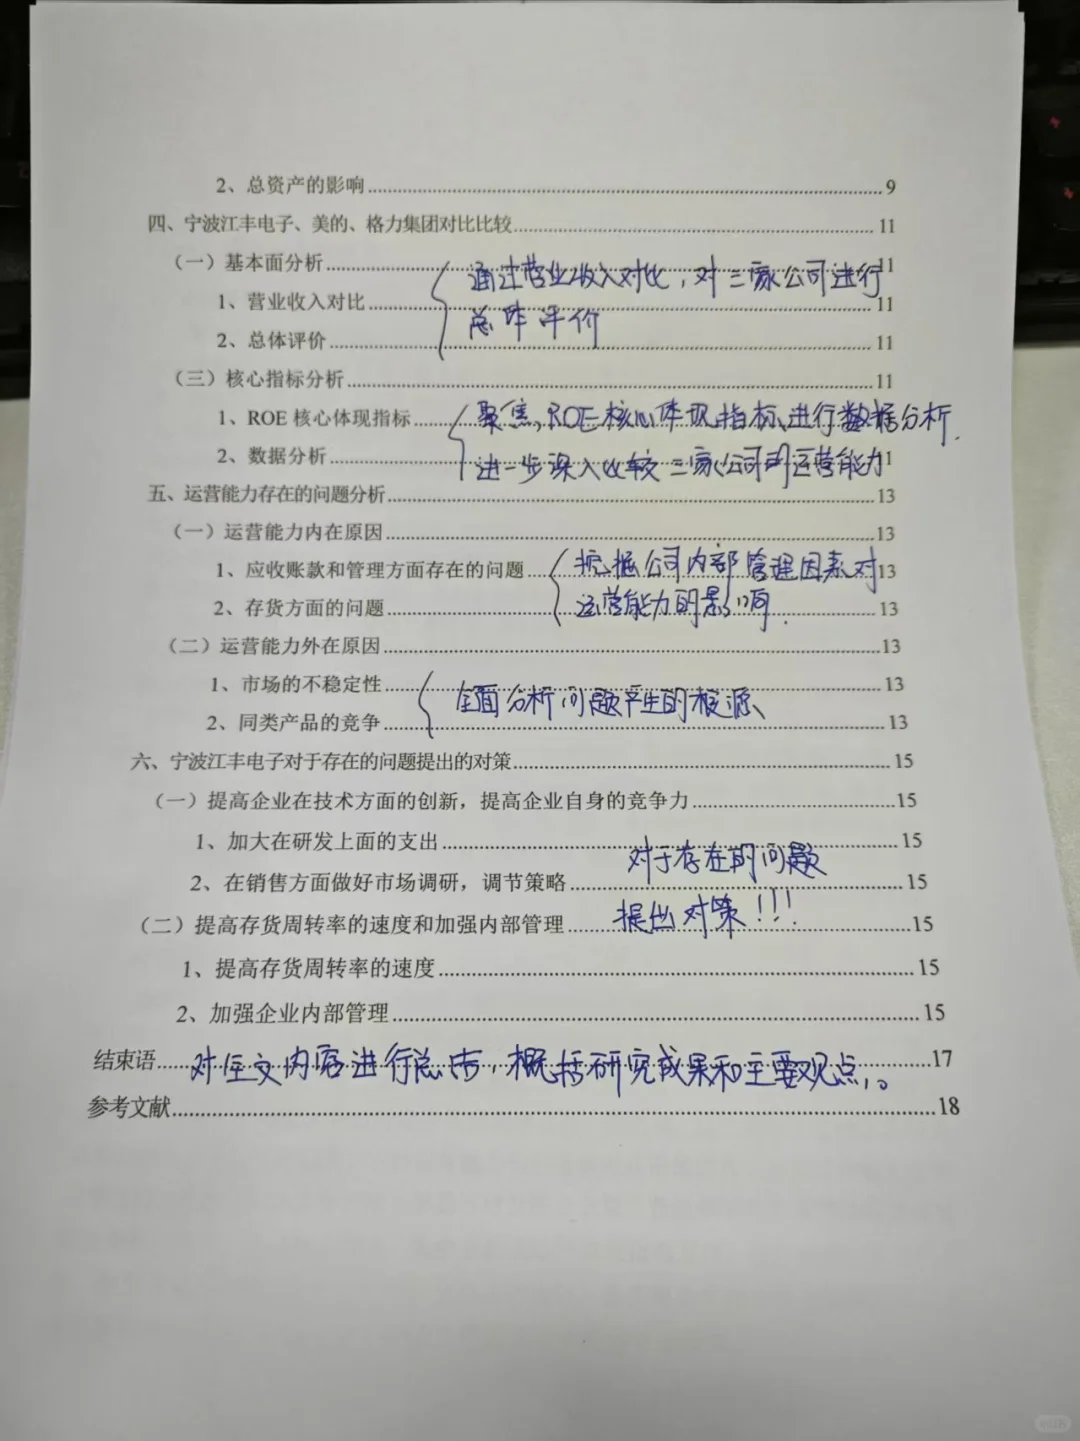 2、总资产的影响 9
四、宁波江丰电子、美的、格力集团对比比较 11
（一）基本面分析 11
通过营业收入对比，对三家公司进行
1、营业收入对比 11
总体评价
2、总体评价 11
（三）核心指标分析 11
1、ROE 核心体现指标
聚焦，ROE核心体现指标、进行数据分析.
2、数据分析 11
进一步深入比较三家公司的运营能力
五、运营能力存在的问题分析 13
（一）运营能力内在原因 13
1、应收账款和管理方面存在的问题 13
挖掘公司内部管理因素对
2、存货方面的问题 13
运营能力的影响.
（二）运营能力外在原因 13
1、市场的不稳定性 13
全面分析问题产生的根源、
2、同类产品的竞争 13
六、宁波江丰电子对于存在的问题提出的对策 15
（一）提高企业在技术方面的创新，提高企业自身的竞争力 15
1、加大在研发上面的支出 15
对于存在的问题
2、在销售方面做好市场调研，调节策略 15
提出对策!!!
（二）提高存货周转率的速度和加强内部管理 15
1、提高存货周转率的速度 15
2、加强企业内部管理 15
结束语 17
对全文内容进行总结，概括研究成果和主要观点，。
参考文献 18